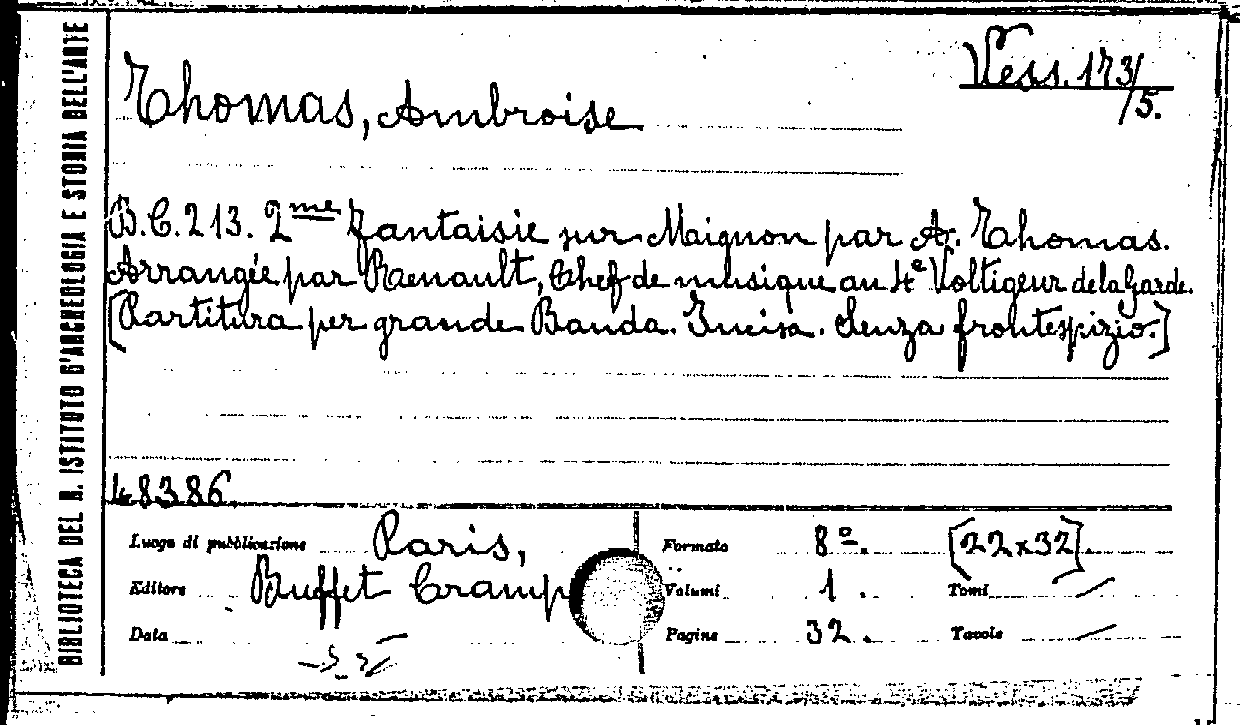 BIBLIOTECA DEL R. ISTITUTO D'ARCHEOLOGIA E STORIA DELL'ARTE
Vess. 173/5.
Thomas, Ambroise
B.C. 213. 2me Fantaisie sur Maignon par A. Thomas.
Arrangée par Renault, Chef de musique au 4e Voltigeur de la Garde.
[Partitura per grande Banda. Incisa. Senza frontespizio.]
48386.
Luogo di pubblicazione Paris,
Editore Buffet Cramp
Data
Formato 8º. [22x32].
Volumi 1. Tomi /
Pagine 32. Tavole /